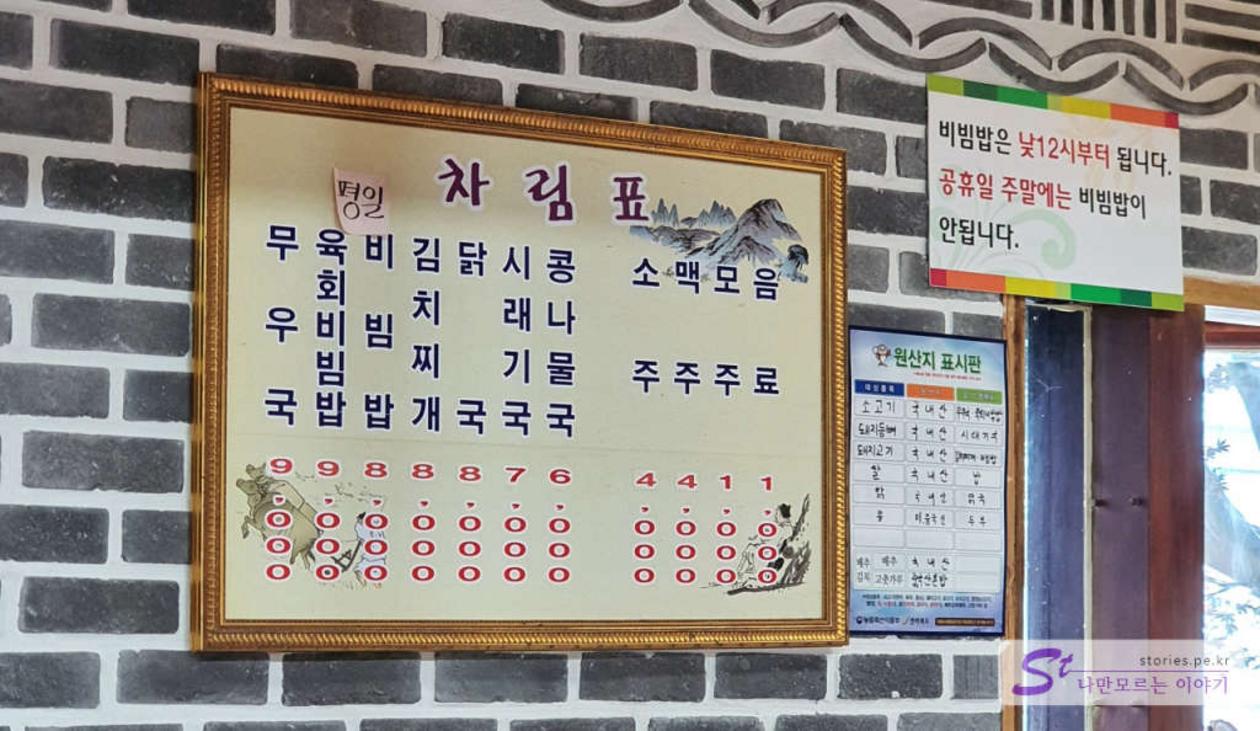 차림표
평일
무우국 9,000
육회비빔밥 9,000
비빔밥 8,000
김치찌개 8,000
닭국 8,000
시래기국 7,000
콩나물국 6,000
소주 4,000
맥주 4,000
모주 1,000
음료 1,000
비빔밥은 낮12시부터 됩니다.
공휴일 주말에는 비빔밥이
안됩니다.
원산지 표시판
소고기 국내산
돼지등뼈 국내산 시래기국
돼지고기 국내산
쌀 국내산 밥
닭 국내산 닭국
콩 두부
배추 배추 국내산
김치 고춧가루
stories.pe.kr
St 나만모르는 이야기